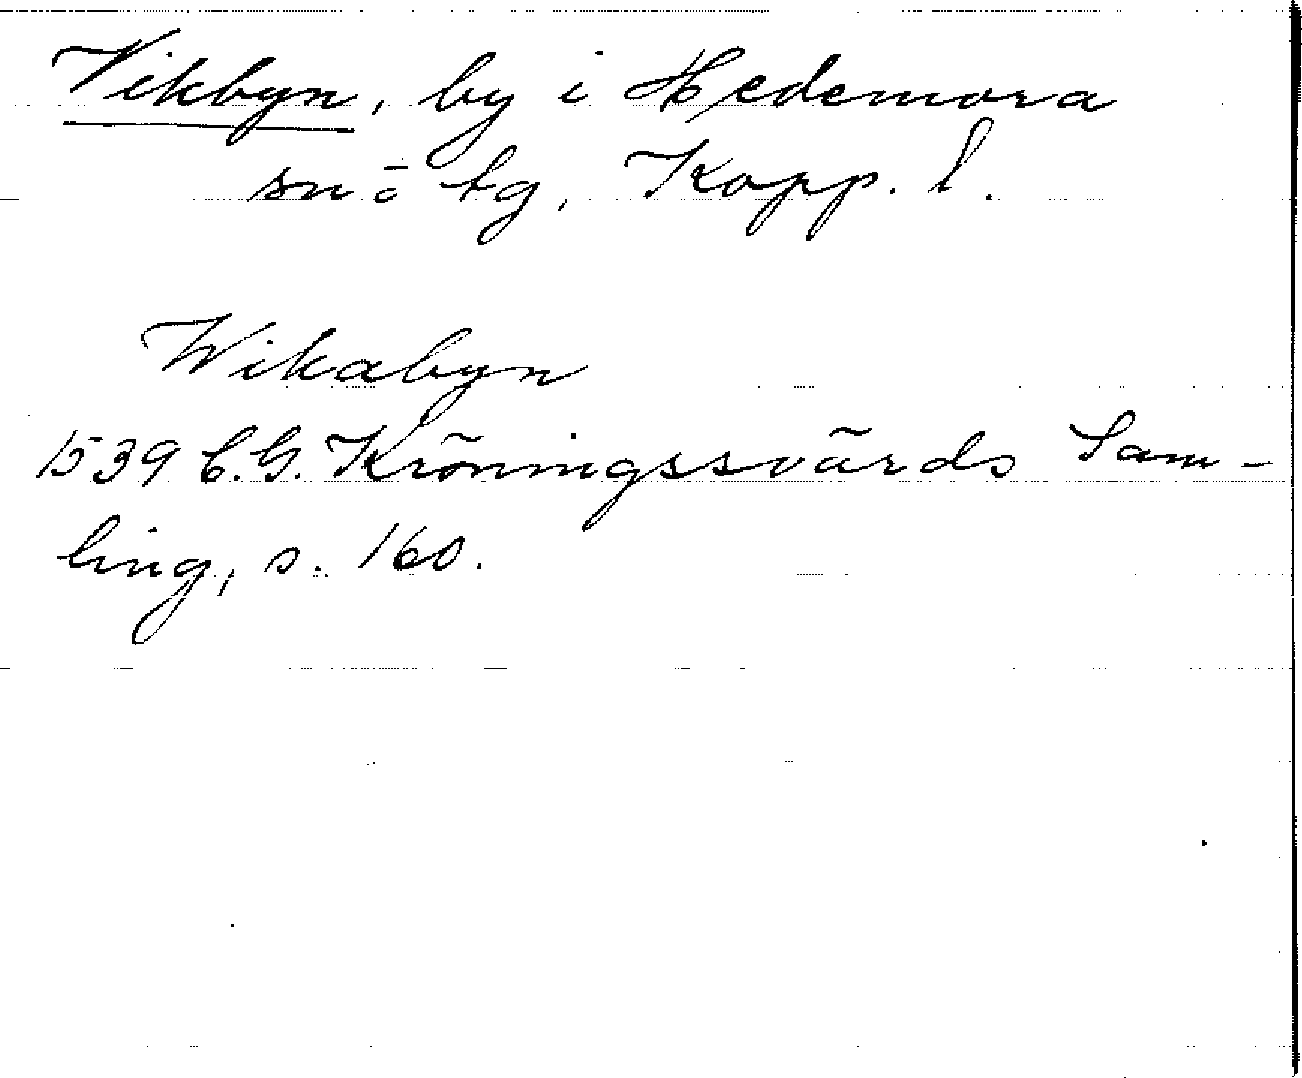 Vikbyn, by i Hedemora
sn ō tg, Kopp. l.
Wikabyn
1539 C.G. Kröningssvärds Sam-
ling, s. 160.